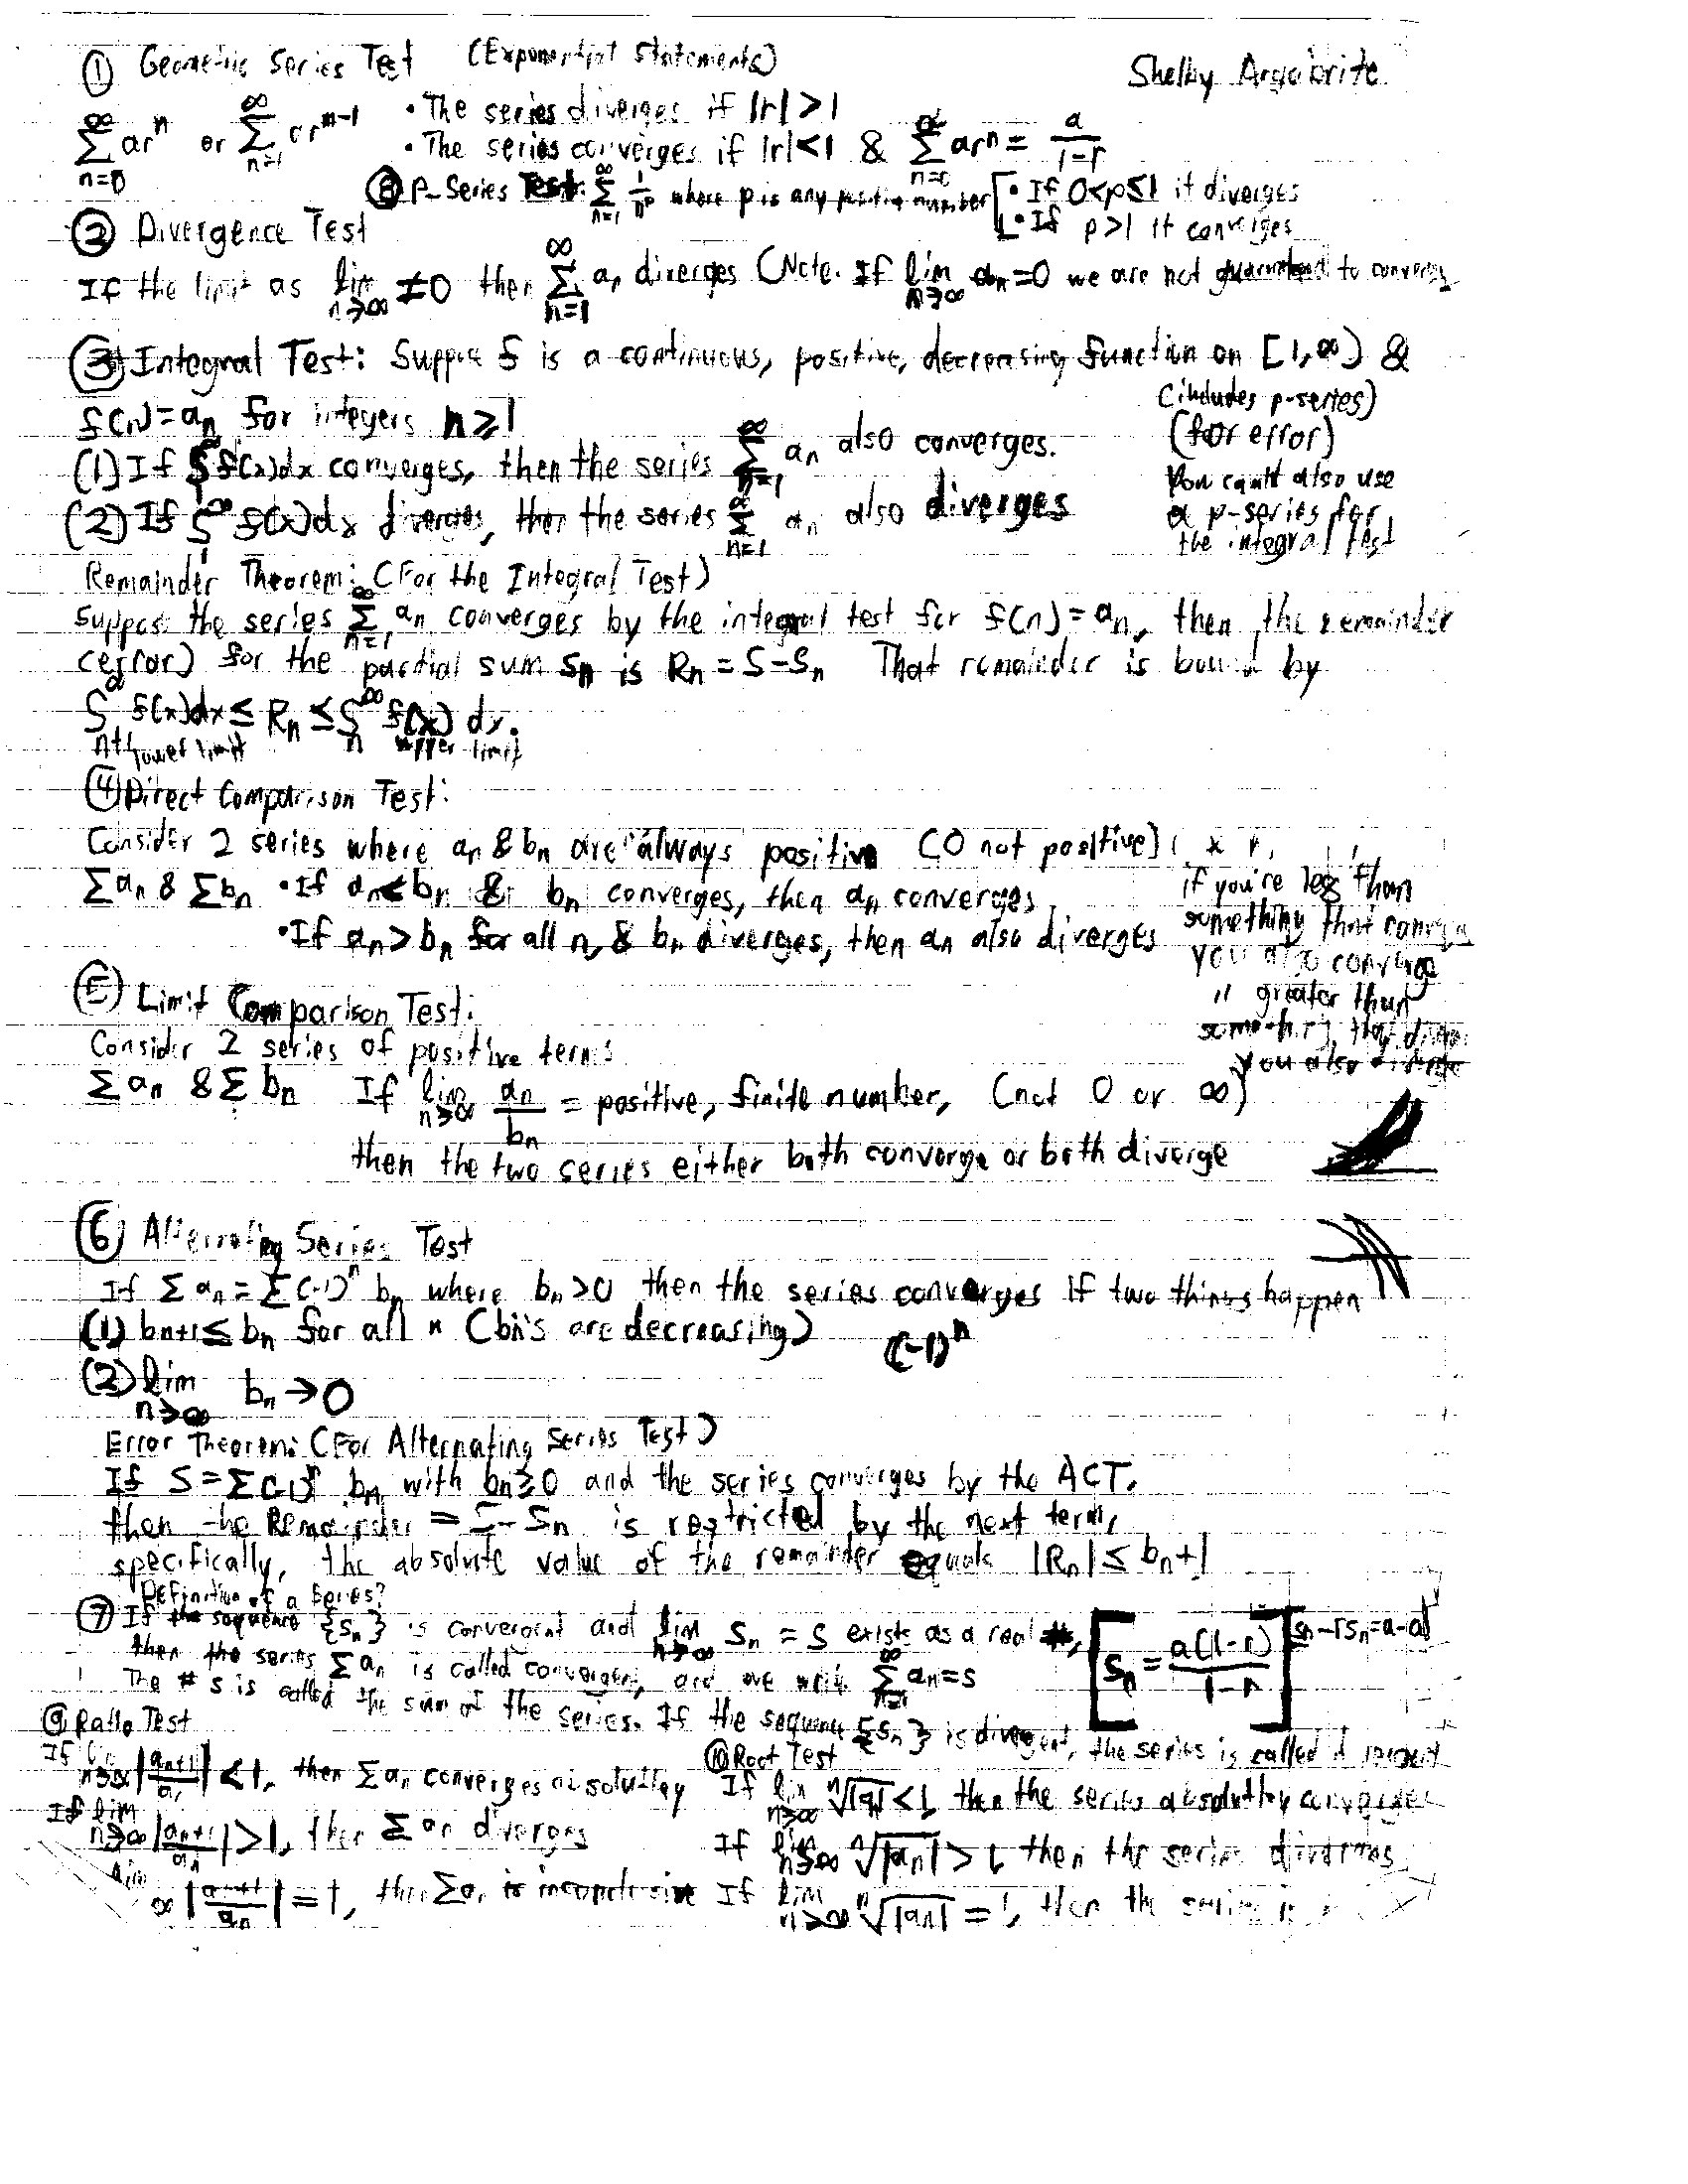 ① Geometric Series Test (Exponential Statements)
Shelby Argabrite
∞∑n=0 ar^n or ∞∑n=1 ar^n-1 • The series diverges if |r|>1
• The series converges if |r|<1 & ∞∑n=0 ar^n = a/1-r
⑧ P-Series Test: ∞∑n=1 1/n^p where p is any positive number [• If 0<p≤1 it diverges
• If p>1 it converges
② Divergence Test
If the limit as lim n→∞ ≠0 then ∞∑n=1 an diverges (Note. If lim n→∞ an=0 we are not guaranteed to converge
③ Integral Test: Suppose f is a continuous, positive, decreasing function on [1,∞) &
f(n)=an for integers n≥1
(includes p-series)
(for error)
(1) If ∫1^∞ f(x)dx converges, then the series ∞∑n=1 an also converges.
(2) If ∫1^∞ f(x)dx diverges, then the series ∞∑n=1 an also diverges
You can't also use
a p-series for
the integral test
Remainder Theorem: (For the Integral Test)
Suppose the series ∞∑n=1 an converges by the integral test for f(n)=an, then the remainder
(error) for the partial sum Sn is Rn=S-Sn That remainder is bound by
∫n+1^∞ f(x)dx ≤ Rn ≤ ∫n^∞ f(x) dx.
lower limit upper limit
④ Direct Comparison Test:
Consider 2 series where an & bn are always positive (0 not positive)
∑an & ∑bn • If an<bn & bn converges, then an converges
• If an>bn for all n, & bn diverges, then an also diverges
if you're less than
something that converges
you also converge
" greater than
something that diverges
you also diverge
⑤ Limit Comparison Test:
Consider 2 series of positive terms
∑an & ∑bn If lim n→∞ an/bn = positive, finite number, (not 0 or ∞)
then the two series either both converge or both diverge
⑥ Alternating Series Test
If ∑an=∑(-1)^n bn where bn>0 then the series converges if two things happen
(1) bn+1≤bn for all n (bn's are decreasing)
(-1)^n
(2) lim n→∞ bn→0
Error Theorem: (For Alternating Series Test)
If S=∑(-1)^n bn with bn≥0 and the series converges by the ACT,
then the Remainder = S-Sn is restricted by the next term,
specifically, the absolute value of the remainder equals |Rn|≤bn+1
Definition of a Series?
⑦ If the sequence {Sn} is convergent and lim n→∞ Sn = S exists as a real #,
then the series ∑an is called convergent, and we write ∞∑n=1 an=s
The # s is called the sum of the series. If the sequence {Sn} is divergent, the series is called divergent
[Sn = a(1-r)/1-r]
Sn-rSn=a-a
⑨ Ratio Test
If lim n→∞ |an+1/an| <1, then ∑an converges absolutley
If lim n→∞ |an+1/an| >1, then ∑an diverges
lim ∞ |an+1/an| =1, then ∑an is inconclusive
⑩ Root Test
If lim n→∞ n√|an| <1, then the series absolutley converges
If lim n→∞ n√|an| >1, then the series diverges
If lim n→∞ n√|an| =1, then the series is